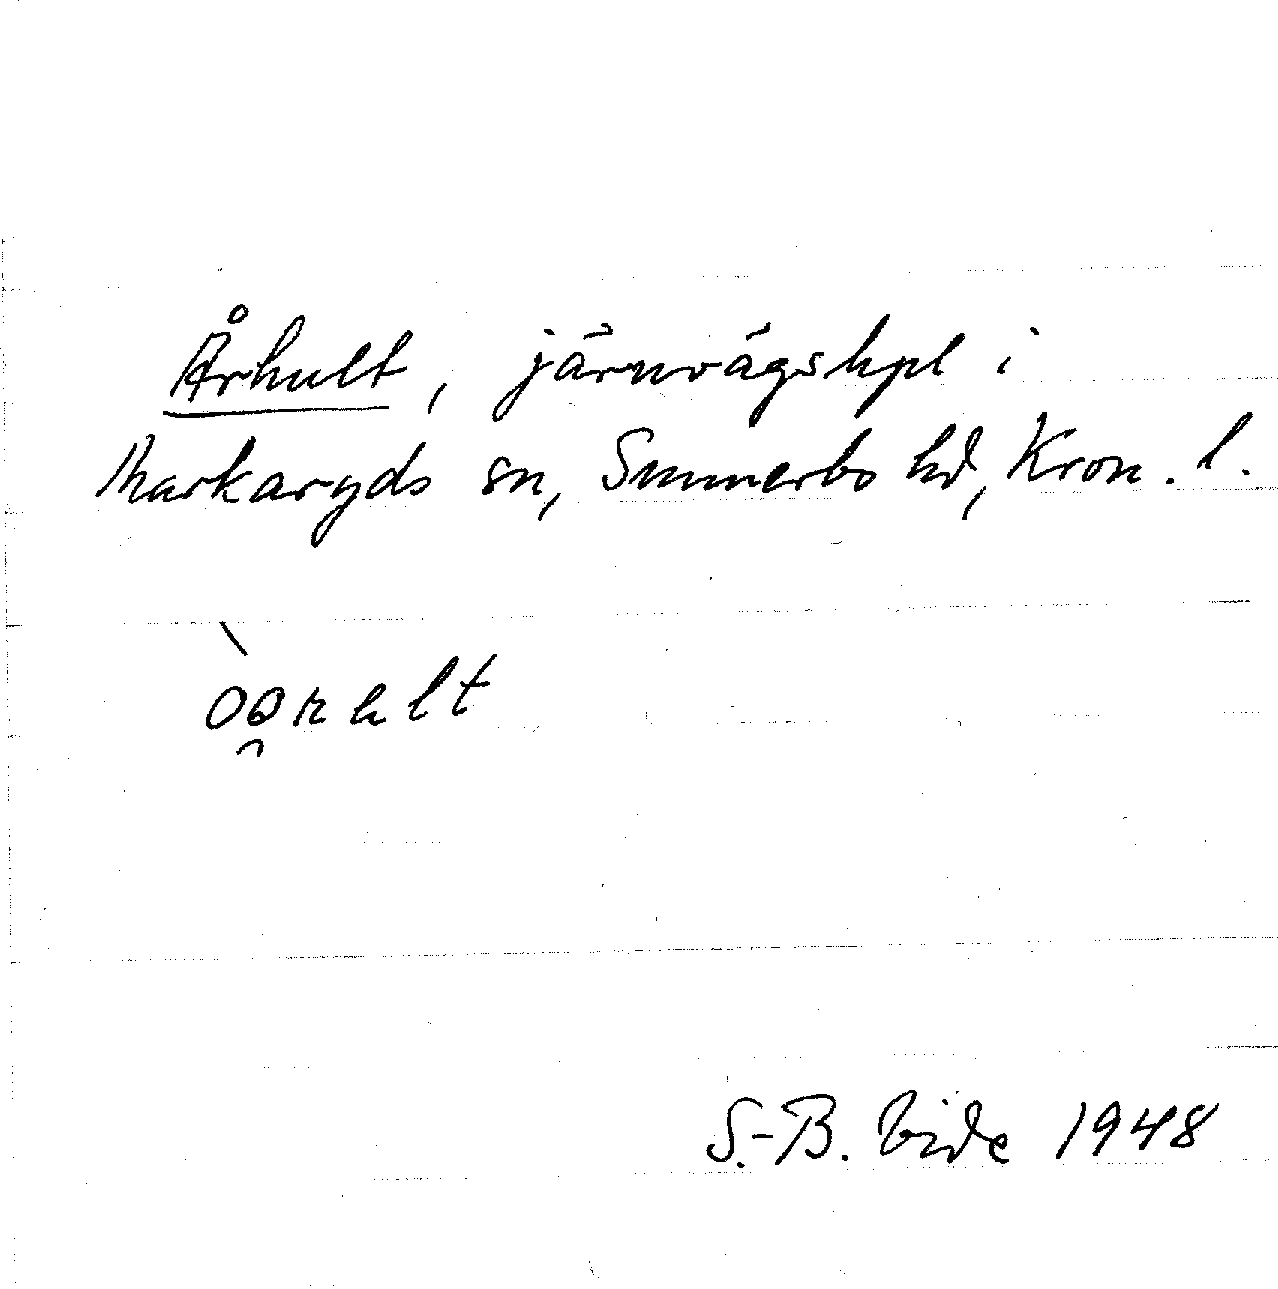 Århult, järnvägshpl i
Markaryds sn, Sunnerbo hd, Kron. l.
òo̯rult
S.-B. Vide 1948